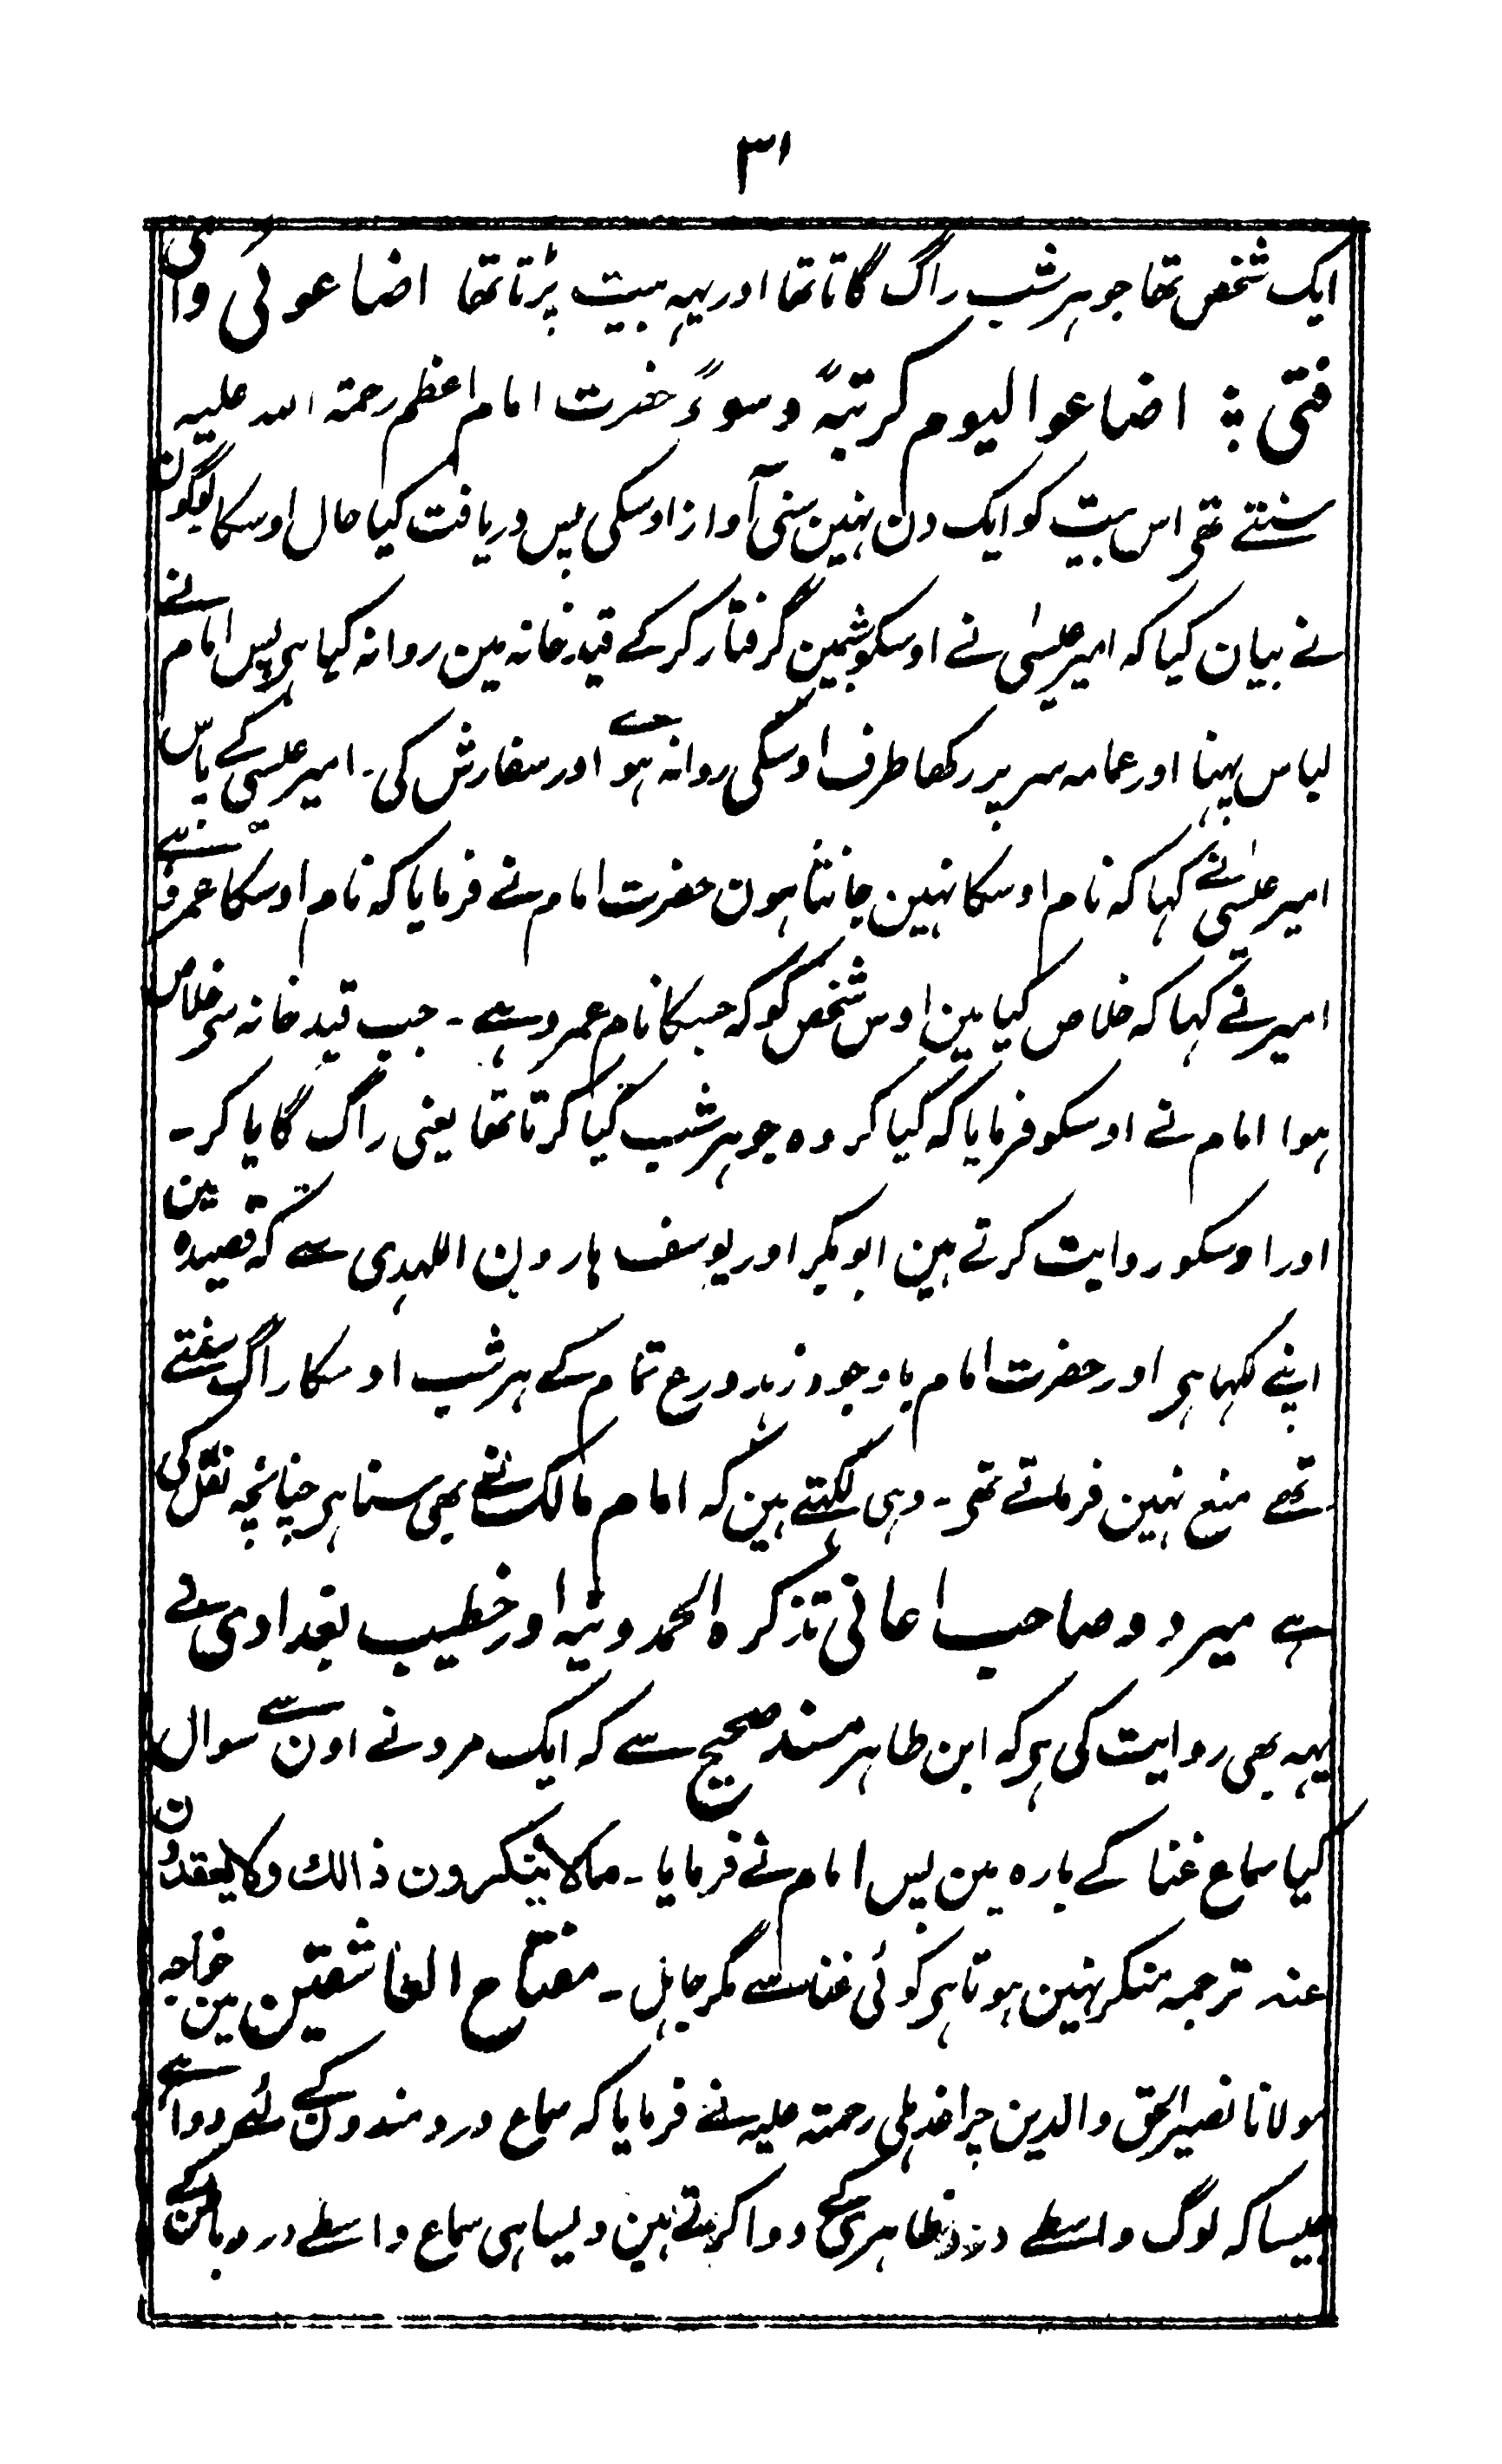 ۳۱
ایک شخص تھا جو ہر شب راگ گاتا تھا اور یہہ بیت پڑتا تھا اضاعونی وای
فتی ؞ اضاعوا الیوم کرتبۃً وسوءً حضرت امام اعظم رحمۃ اللہ علیہ
سنتے تھی اس بیت کو ایک دن نہین سنی آواز اوسکی پس دریافت کیا حال اوسکا لوگون
نے بیان کیا کہ امیر عیسٰی نے اوسکو شبمین گرفتار کر کے قید خانہ مین روانہ کیا ہی پس امام نے
لباس پہنا اور عمامہ سر پر رکھا طرف اوسکی روانہ ہوے اور سفارش کی ۔ امیر عیسی کے پاس
امیر عیسٰی نے کہا کہ نام اوسکا نہین جانتا ہون حضرت امام نے فرمایا کہ نام اوسکا عمرو ہے
امیر نے کہا کہ خلاص کیا مین اوس شخص کو کہ جسکا نام عمرو ہے ۔ جب قید خانہ سی خلاص
ہوا امام نے اوسکو فرمایا کہ کیا کر وہ جو ہر شب کیا کرتا تھا یعنی راگ گایا کر ۔
اور اوسکو روایت کرتے ہین ابو بکر اور یوسف ہارون اللہدی سے کہ قصیدہ مین
اپنے کہا ہی اور حضرت امام باوجود زہد ورع تمام کے ہر شب اوسکا راگ سنتے
تھے منع نہین فرماتے تھی ۔ وہی لکہتے ہین کہ امام مالک نے بھی سنا ہی چنانچہ نقل کی
ہے میرد و صاحب اغانی تذکرہ الحمدونیہ اور خطیب بغدادی نے
یہہ بھی روایت کی ہی کہ ابن طاہر مسند صحیح سے کہ ایک مرد نے اون سے سوال
کیا سماع غنا کے بارہ مین پس امام نے فرمایا ۔ مالا ینکرون ذالك ولا یعقدون
عنہ ترجمہ منکر نہین ہوتا ہی کوئی غنا سے مگر جاہل ۔ مفتاح العاشقین مین خواجہ
مولانا نصیر الحق والدین چراغدہلی رحمتہ علیہ نے فرمایا کہ سماع دردمندون کے لئے دوا ہے
جیسا کہ لوگ واسطے درد ظاہری کے دوا کرتے ہین ویسا ہی سماع واسطے درد باطن کے